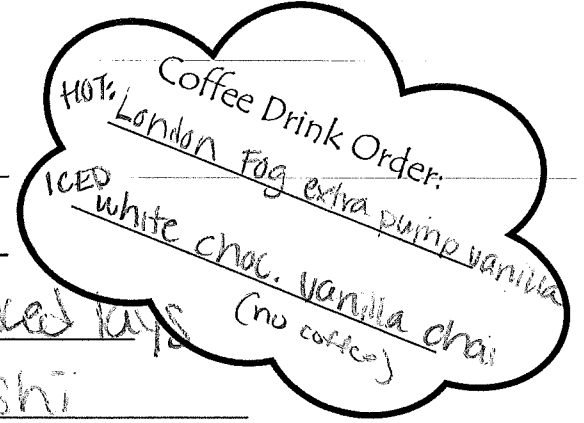 Coffee Drink Order:
HOT: London Fog extra pump vanilla
ICED white choc. vanilla chai
(no coffee)
lays